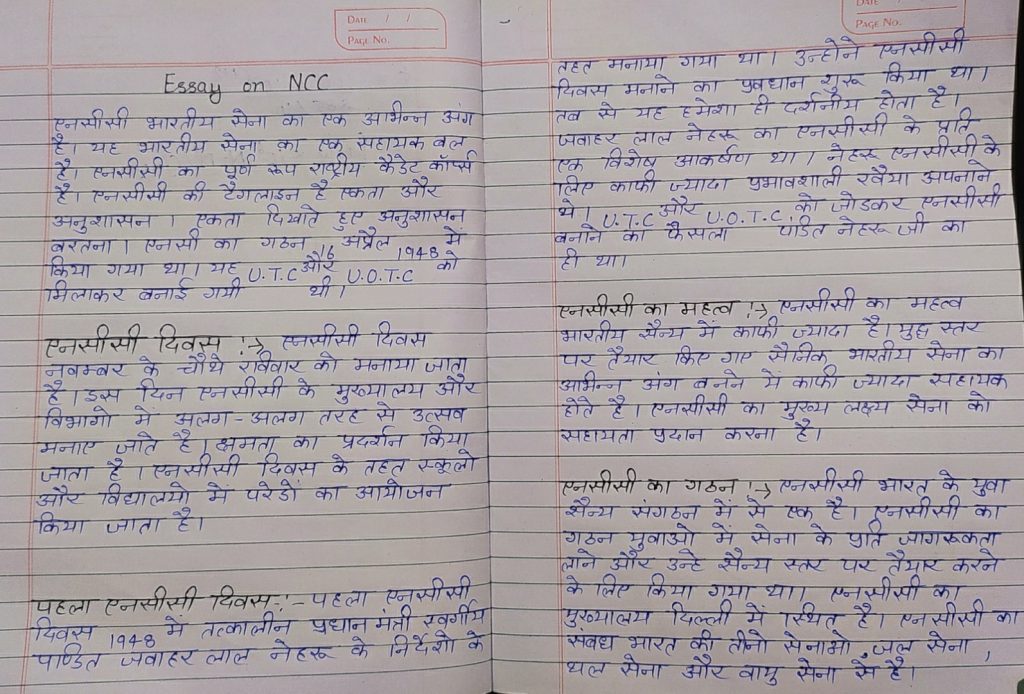 DATE / /
PAGE NO.
Essay on NCC
एनसीसी भारतीय सेना का एक अभिन्न अंग
है। यह भारतीय सेना का एक सहायक बल
है। एनसीसी का पूर्ण रूप राष्ट्रीय कैडेट कॉर्प्स
है। एनसीसी की टैगलाइन है एकता और
अनुशासन । एकता दिखाते हुए अनुशासन
बरतना। एनसी का गठन 16 अप्रैल 1948 में
किया गया था। यह U.T.C और U.O.T.C को
मिलाकर बनाई गयी थी।
एनसीसी दिवस :→ एनसीसी दिवस
नवम्बर के चौथे रविवार को मनाया जाता
है। इस दिन एनसीसी के मुख्यालय और
विभागो में अलग-अलग तरह से उत्सव
मनाए जाते है। क्षमता का प्रदर्शन किया
जाता है । एनसीसी दिवस के तहत स्कूलो
और विद्यालयो में परेडों का आयोजन
किया जाता है।
पहला एनसीसी दिवस:- पहला एनसीसी
दिवस 1948 में तत्कालीन प्रधान मंत्री स्वर्गीय
पाण्डित जवाहर लाल नेहरू के निर्देशो के
DATE / /
PAGE NO.
तहत मनाया गया था। उन्होने एनसीसी
दिवस मनाने का प्रवधान शुरू किया था।
तब से यह हमेशा ही दर्शनीय होता है।
जवाहर लाल नेहरू का एनसीसी के प्रति
एक विशेष आकर्षण था । नेहरू एनसीसी के
लिए काफी ज्यादा प्रभावशाली रवैया अपनाने
थे। U.T.C और U.O.T.C. को जोडकर एनसीसी
बनाने का फैसला पंडित नेहरू जी का
ही था।
एनसीसी का महत्व :→ एनसीसी का महत्व
भारतीय सैन्य में काफी ज्यादा है। मुद्द स्तर
पर तैयार किए गए सैनिक भारतीय सेना का
अभिन्न अंग बनने में काफी ज्यादा सहायक
होते है। एनसीसी का मुख्य लक्ष्य सेना को
सहायता प्रदान करना है।
एनसीसी का गठन :→ एनसीसी भारत के युवा
सैन्य संगठन में से एक है। एनसीसी का
गठन युवाओ में सेना के प्रति जागरूकता
लाने और उन्हे सैन्य स्तर पर तैयार करने
के लिए किया गया था। एनसीसी का
मुख्यालय दिल्ली में स्थित है। एनसीसी का
संबंध भारत की तीनो सेनाओ, जल सेना,
थल सेना और वायु सेना से है।